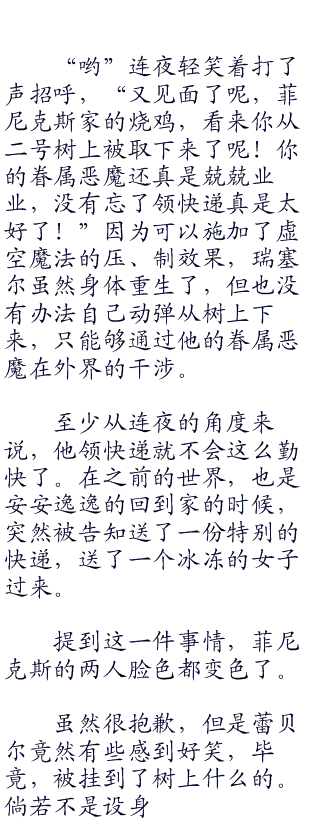 “哟”连夜轻笑着打了
声招呼，“又见面了呢，菲
尼克斯家的烧鸡，看来你从
二号树上被取下来了呢！你
的眷属恶魔还真是兢兢业
业，没有忘了领快递真是太
好了！”因为可以施加了虚
空魔法的压、制效果，瑞塞
尔虽然身体重生了，但也没
有办法自己动弹从树上下
来，只能够通过他的眷属恶
魔在外界的干涉。
至少从连夜的角度来
说，他领快递就不会这么勤
快了。在之前的世界，也是
安安逸逸的回到家的时候，
突然被告知送了一份特别的
快递，送了一个冰冻的女子
过来。
提到这一件事情，菲尼
克斯的两人脸色都变色了。
虽然很抱歉，但是蕾贝
尔竟然有些感到好笑，毕
竟，被挂到了树上什么的。
倘若不是设身